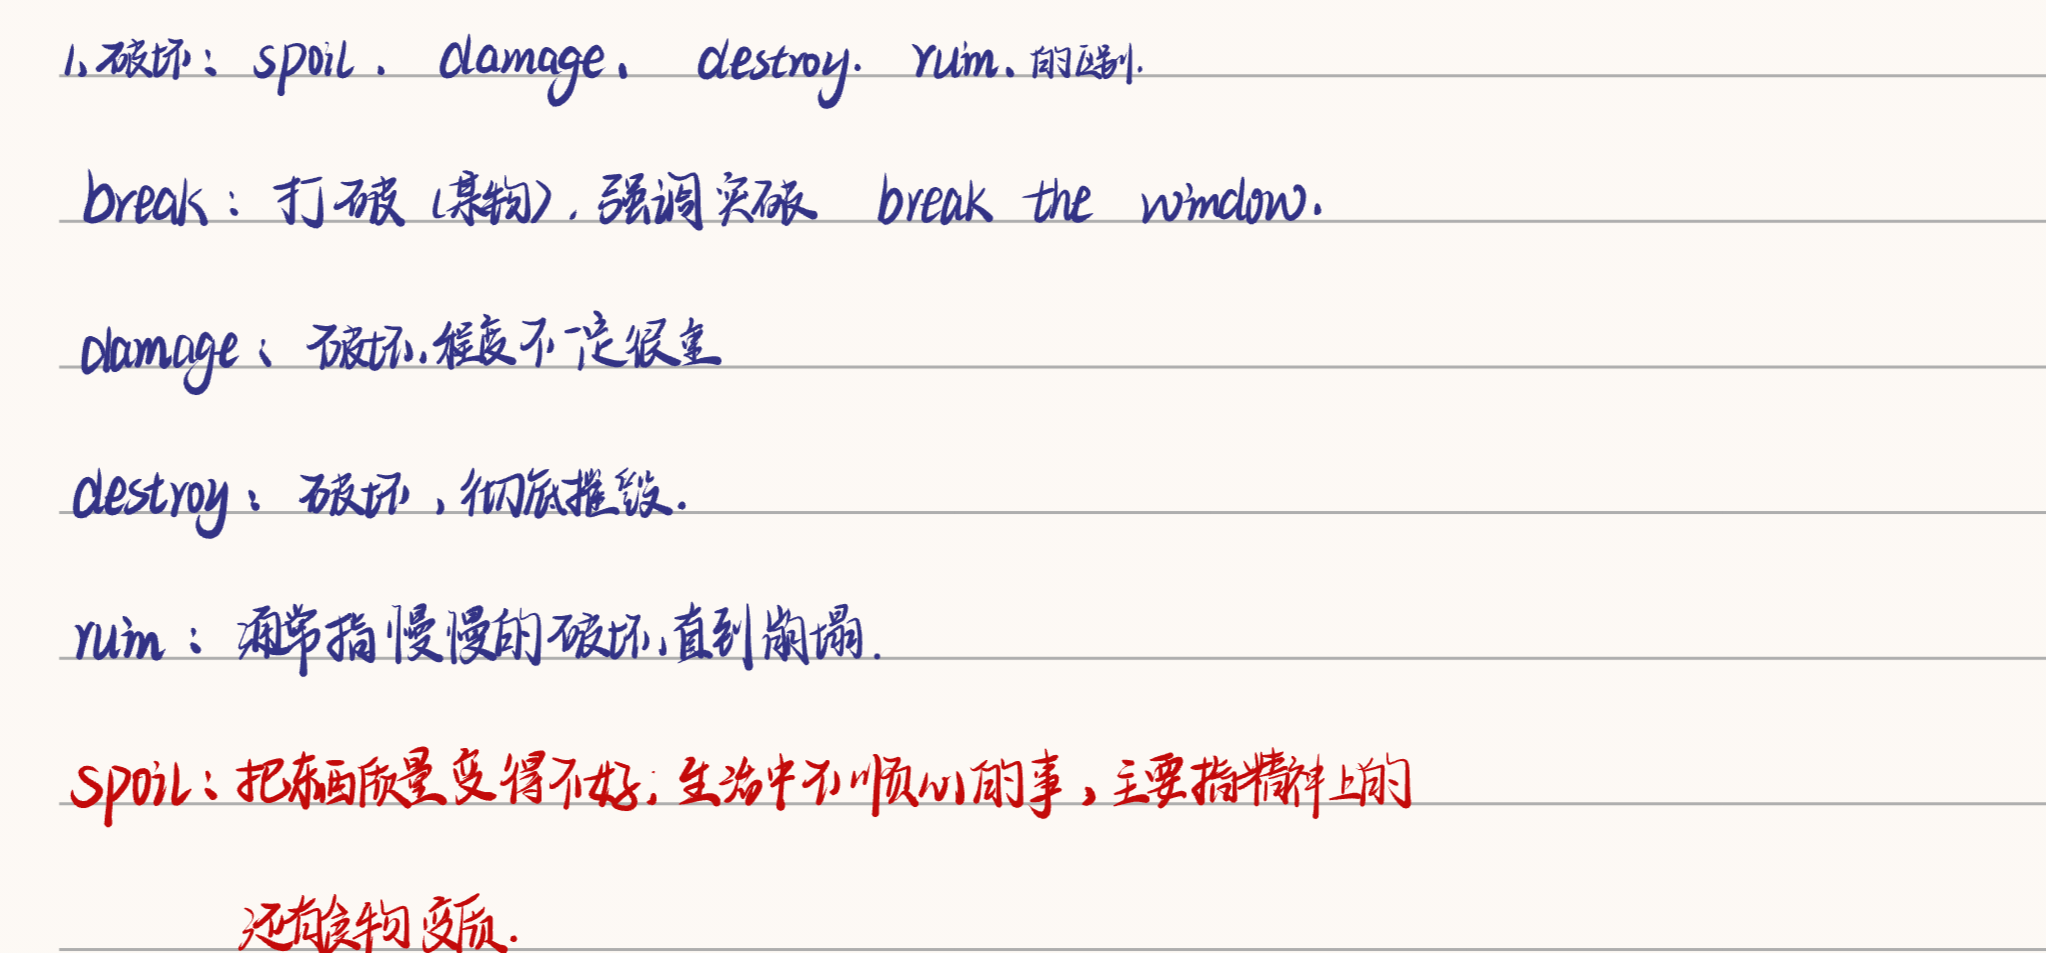 1、破坏：spoil、damage、destroy. ruin、的区别.
break：打破（某物），强调突破 break the window.
damage：破坏，程度不一定很重
destroy：破坏，彻底摧毁.
ruin：通常指慢慢的破坏，直到崩塌.
spoil：把东西质量变得不好；生活中不顺心的事，主要指精神上的
还有食物变质.